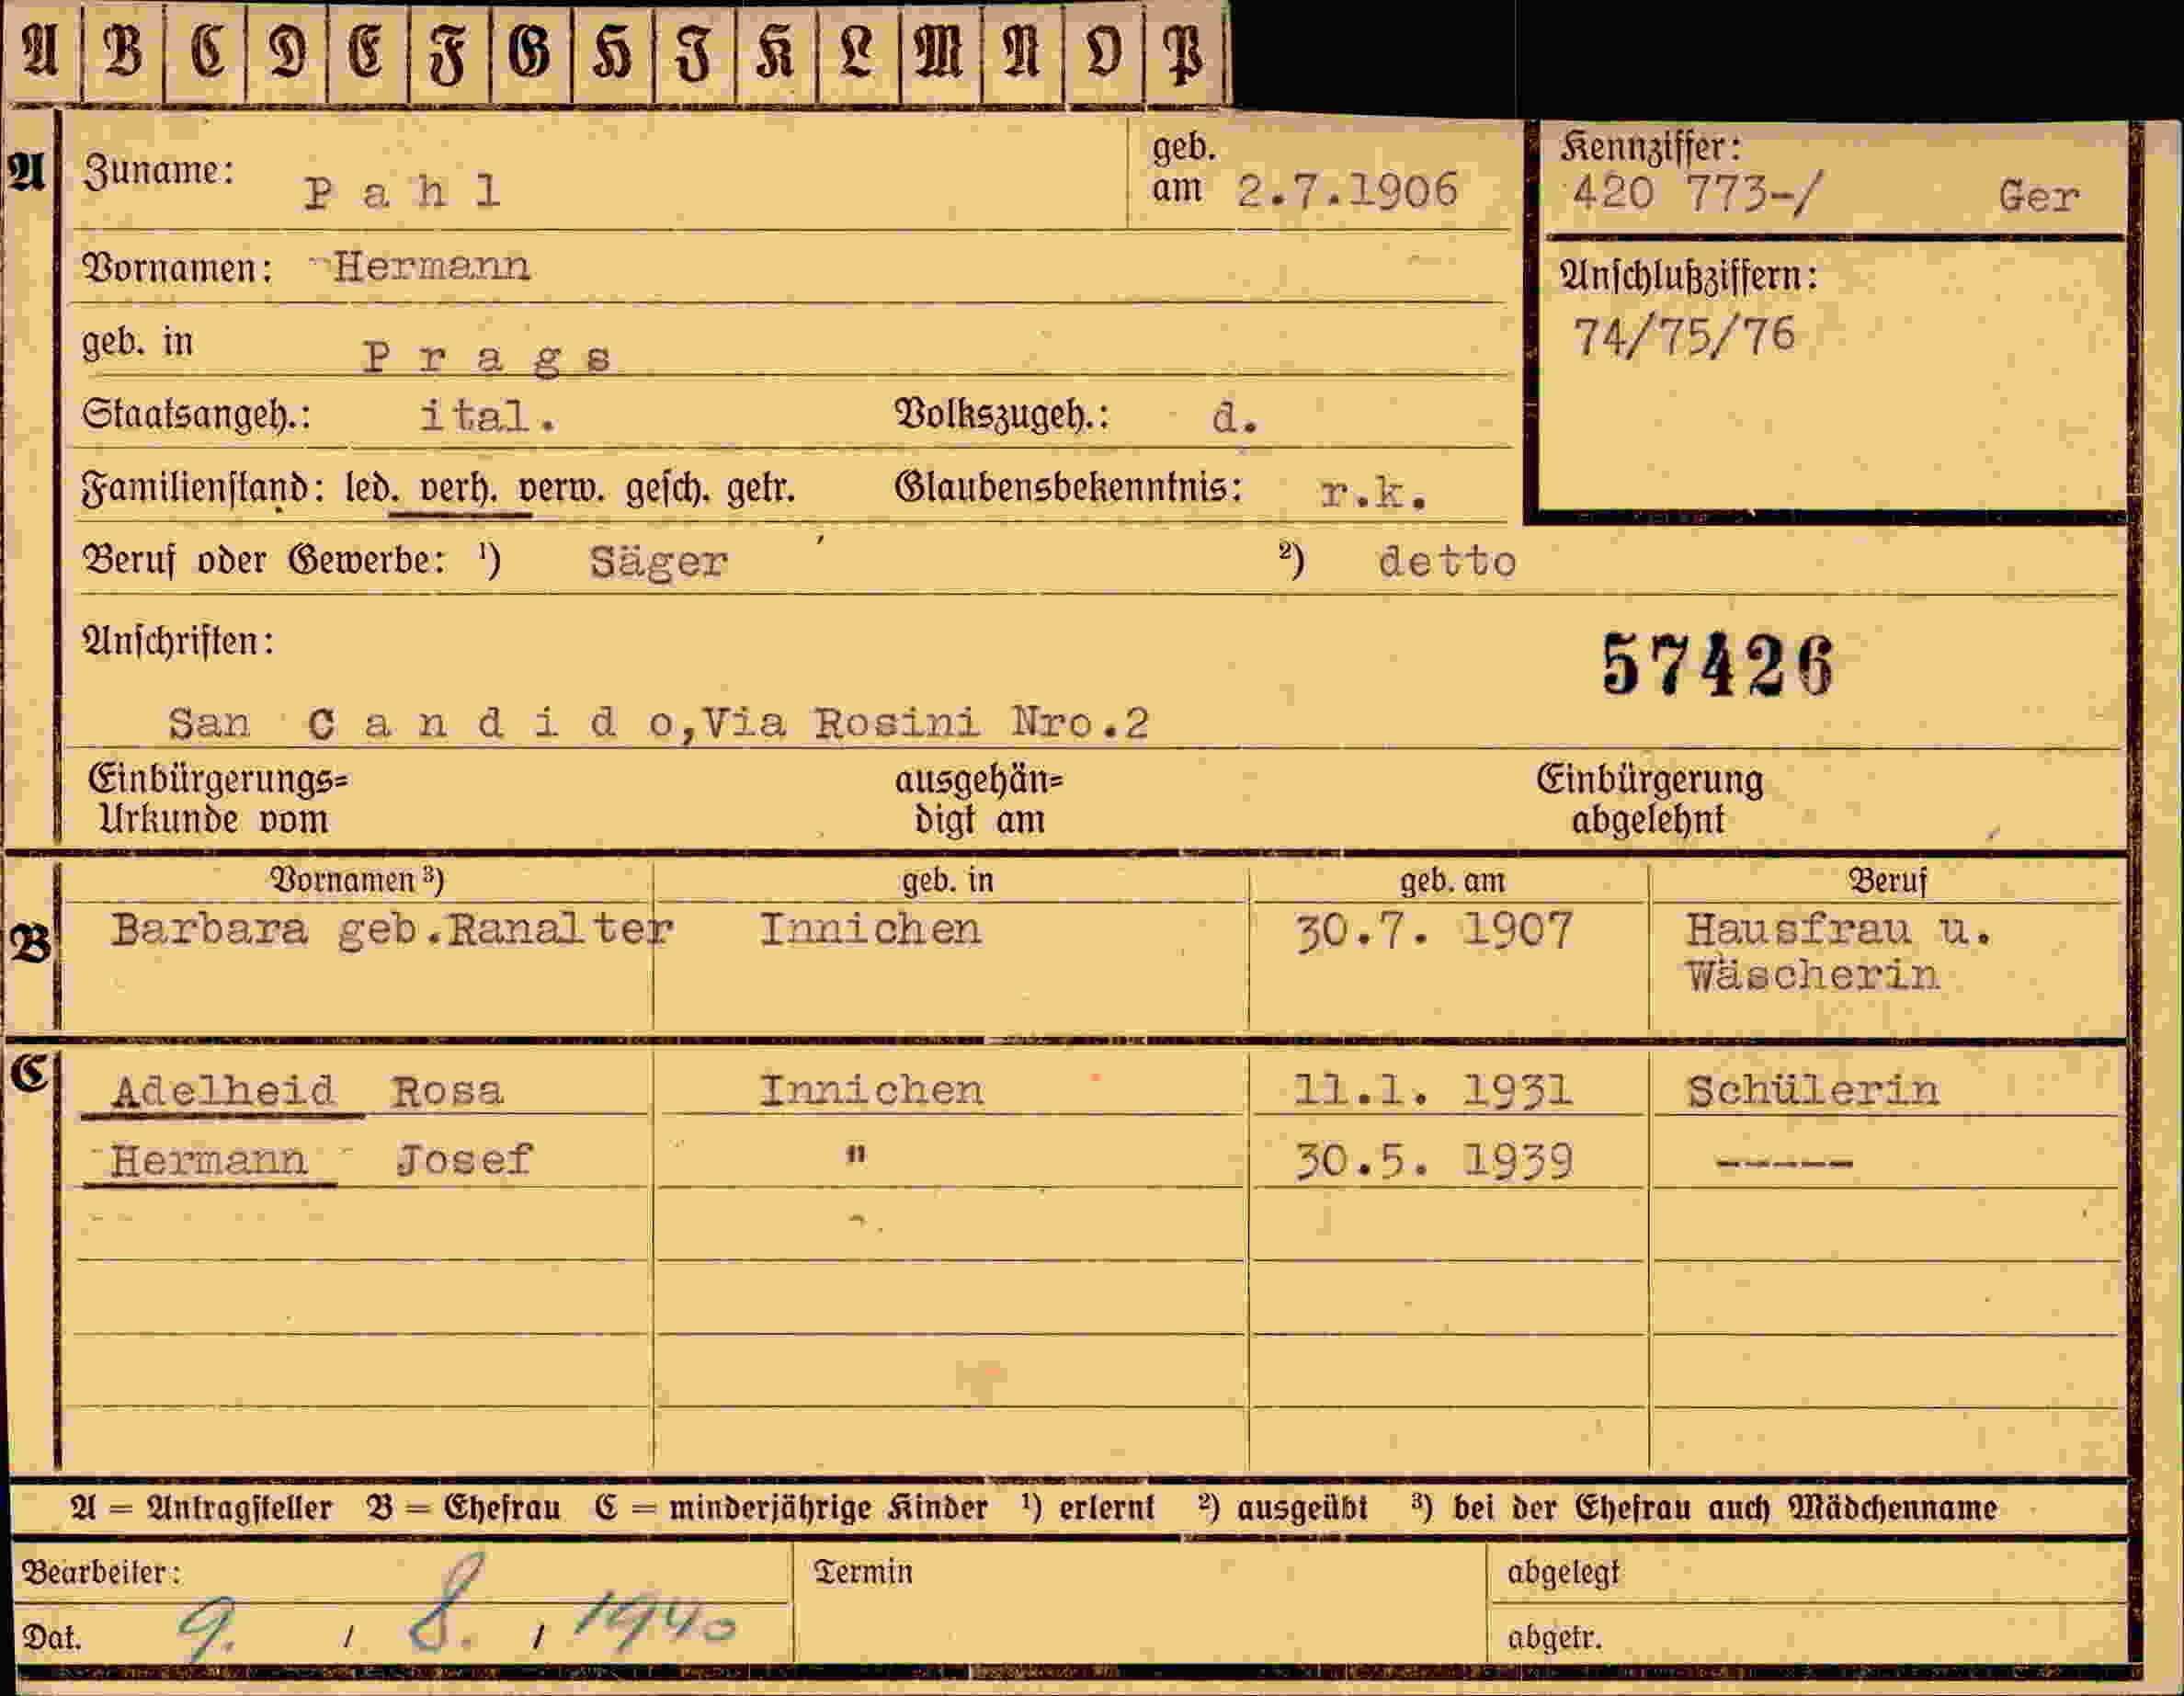 A B C D E F G H I K L M N O P
A Zuname: P a h l geb. am 2.7.1906 Kennziffer: 420 773-/ Ger
Vornamen: Hermann Anschlußziffern:
geb. in P r a g s 74/75/76
Staatsangeh.: ital. Volkszugeh.: d.
Familienstand: led. verh. verw. gesch. getr. Glaubensbekenntnis: r.k.
Beruf oder Gewerbe: ¹) Säger ²) detto
Anschriften: 57426
San C a n d i d o,Via Rosini Nro.2
Einbürgerungs= ausgehän= Einbürgerung
Urkunde vom digt am abgelehnt
Vornamen ³) geb. in geb. am Beruf
B Barbara geb.Ranalter Innichen 30.7. 1907 Hausfrau u.
Wäscherin
C Adelheid Rosa Innichen 11.1. 1931 Schülerin
Hermann Josef " 30.5. 1939 -----
A = Antragsteller B = Ehefrau C = minderjährige Kinder ¹) erlernt ²) ausgeübt ³) bei der Ehefrau auch Mädchenname
Bearbeiter: Termin abgelegt
Dat. 9. / 8. / 1940 abgetr.